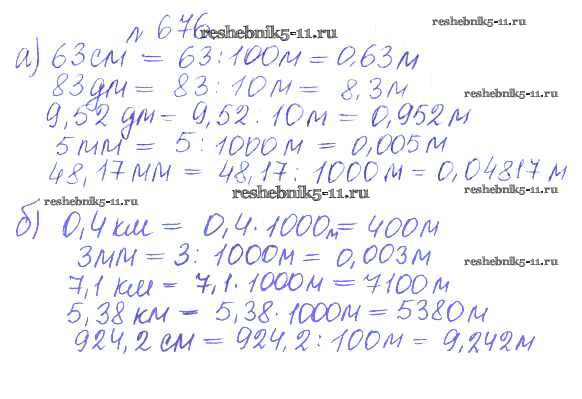 № 676
reshebnik5-11.ru
reshebnik5-11.ru
а) 63 см = 63 : 100 м = 0,63 м
83 дм = 83 : 10 м = 8,3 м
reshebnik5-11.ru
9,52 дм = 9,52 : 10 м = 0,952 м
5 мм = 5 : 1000 м = 0,005 м
reshebnik5-11.ru
48,17 мм = 48,17 : 1000 м = 0,04817 м
reshebnik5-11.ru
reshebnik5-11.ru
б) 0,4 км = 0,4 · 1000 м = 400 м
3 мм = 3 : 1000 м = 0,003 м
reshebnik5-11.ru
7,1 км = 7,1 · 1000 м = 7100 м
5,38 км = 5,38 · 1000 м = 5380 м
reshebnik5-11.ru
924,2 см = 924,2 : 100 м = 9,242 м